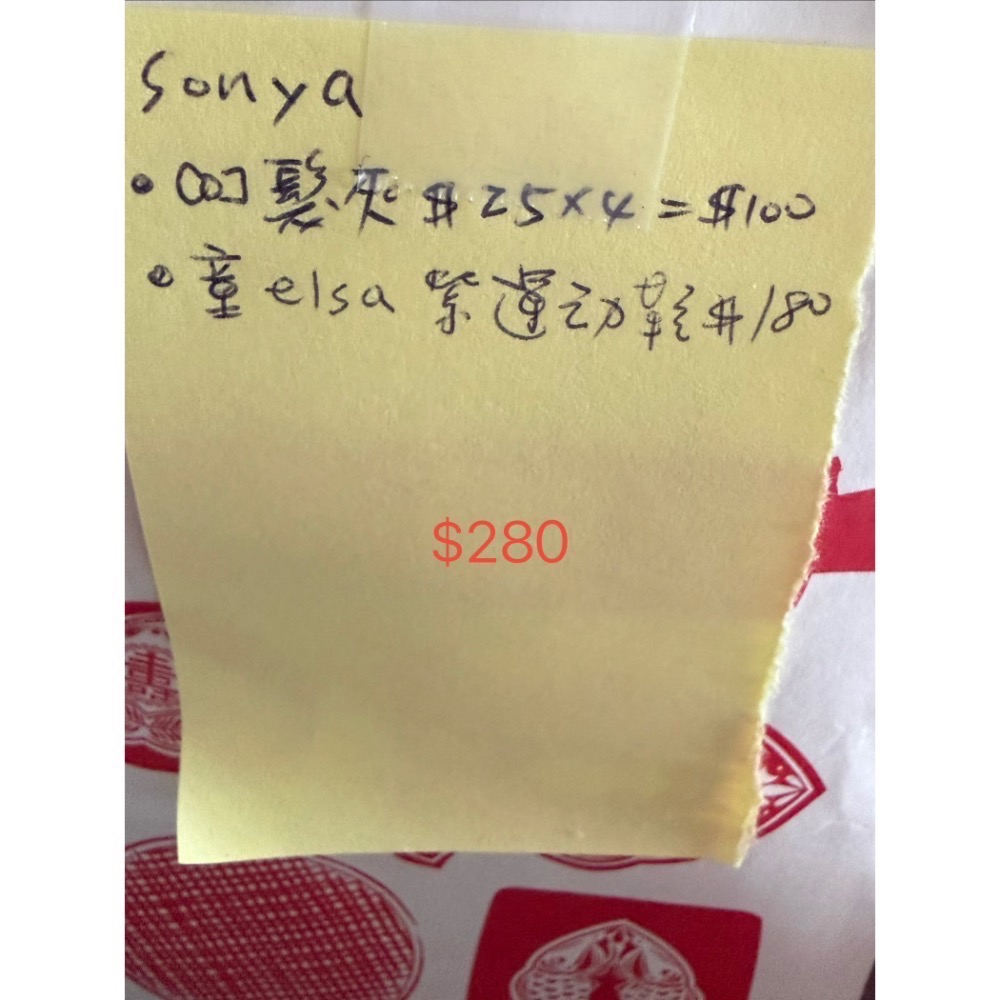 Sonya
• 髮夾 $25×4=$100
• 童 elsa 紫運动鞋$180
$280